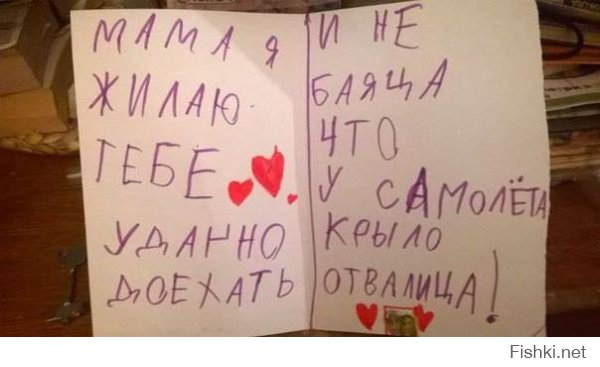 МАМА Я
ЖИЛАЮ
ТЕБЕ
УДАЧНО
ДОЕХАТЬ
И НЕ
БАЯЦА
ЧТО
У САМОЛЁТА
КРЫЛО
ОТВАЛИЦА!
Fishki.net